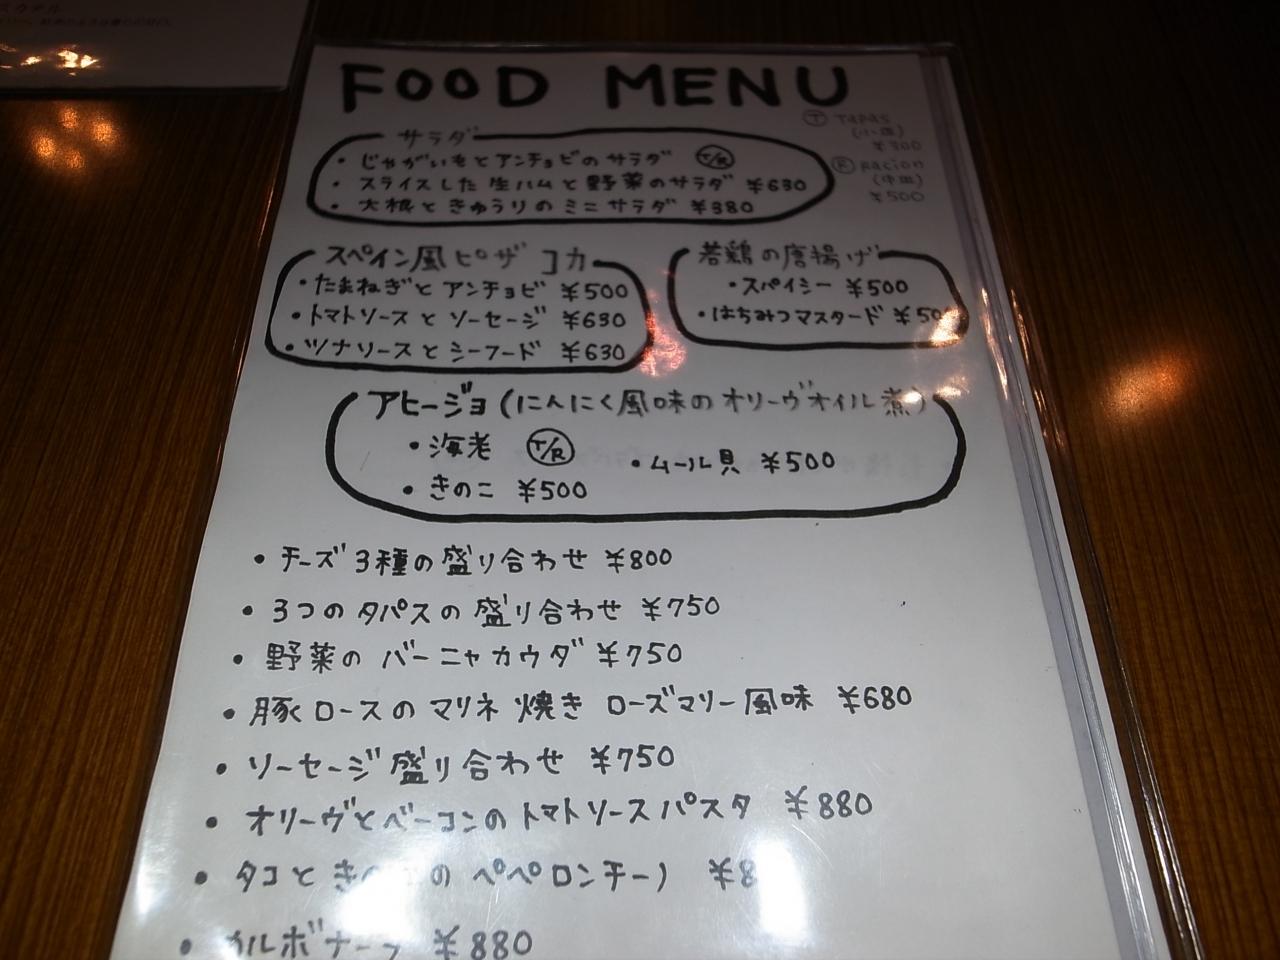 FOOD MENU
Ⓣ TAPAS
(小皿)
¥300
Ⓡ Racion
(中皿)
¥500
サラダ
・じゃがいもとアンチョビのサラダ T/R
・スライスした生ハムと野菜のサラダ ¥630
・大根ときゅうりのミニサラダ ¥380
スペイン風ピザ コカ
・たまねぎとアンチョビ ¥500
・トマトソースとソーセージ ¥630
・ツナソースとシーフード ¥630
若鶏の唐揚げ
・スパイシー ¥500
・はちみつマスタード
アヒージョ(にんにく風味のオリーヴオイル煮)
・海老 T/R
・ムール貝 ¥500
・きのこ ¥500
・チーズ3種の盛り合わせ ¥800
・3つのタパスの盛り合わせ ¥750
・野菜のバーニャカウダ ¥750
・豚ロースのマリネ焼き ローズマリー風味 ¥680
・ソーセージ盛り合わせ ¥750
・オリーヴとベーコンのトマトソースパスタ ¥880
・タコと ペペロンチーノ
・カルボナーラ ¥880